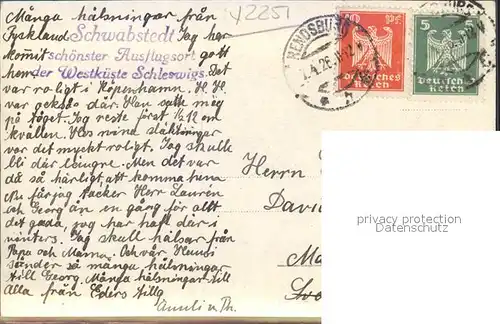 Många hälsningar från
Tyskland Jag har
Schwabstedt
komit gott
schönster Ausflugsort
hem Det
der Westküste Schleswigs.
var roligt i Köpenhamn. H. H.
var också där. Han satte mig
på tåget. Jag reste först ½12 om
kvällen. Hos mina släktingar
var det mycket roligt. Jag skulle
bli där längre. Men det var
då så härligt, att komma
Nu får jag tacker Herr Laurén
och Georg än en gång för allt
det goda, jag har haft där i
vinters. Jag skull hälsar från
Papa och Mamma. Och vår Heini
sänder så många hälsningar
till Georg. Många hälsningar till
Alla från Eders
Y2251
RENDSBURG
Deutsches
Reich
5
Deutsches
Reich
Herrn
David
privacy protection
Datenschutz